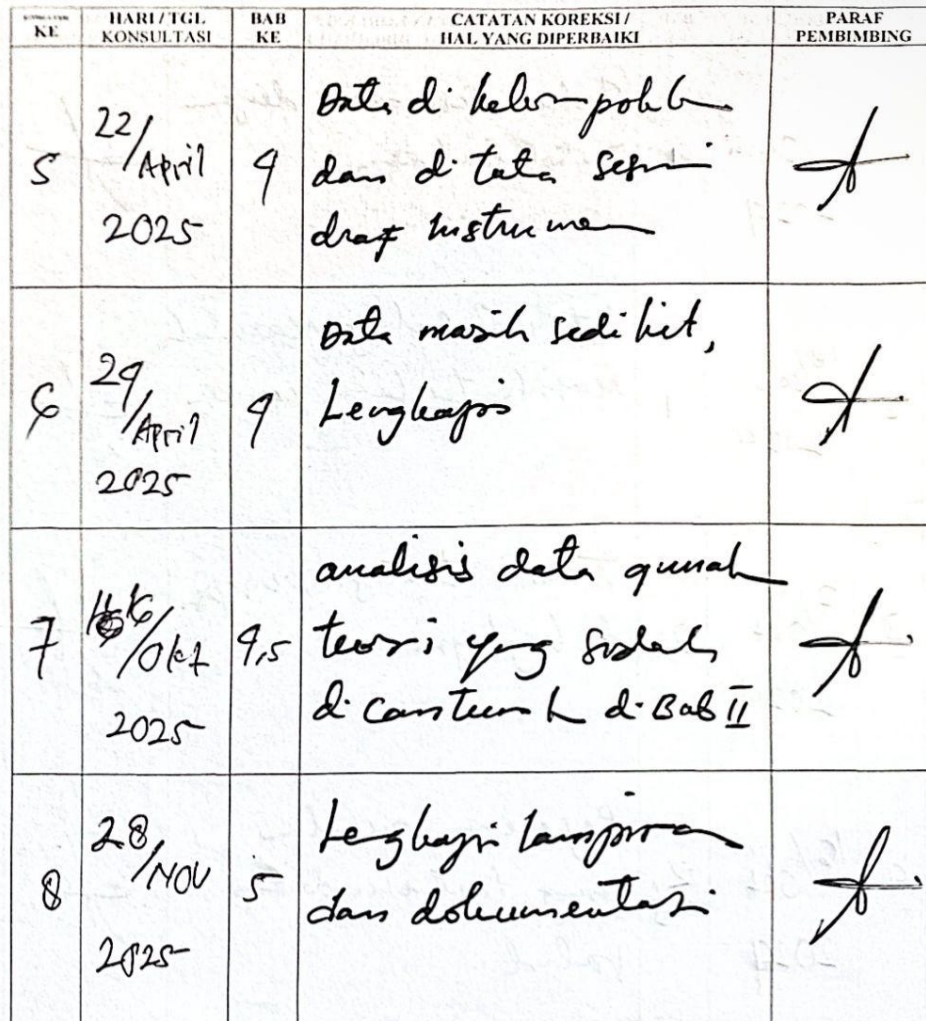 KE
HARI / TGL KONSULTASI
BAB KE
CATATAN KOREKSI / HAL YANG DIPERBAIKI
PARAF PEMBIMBING
5
22/April 2025
4
Data di kelompokk
dan di tata sesuai
draf instrumen
6
29/April 2025
4
Data masih sedikit,
Lengkapi
7
16/Okt 2025
4,5
analisis data gunak
teori yang sudah
di cantumk di Bab II
8
28/NOV 2025
5
Lengkapi lampiran
dan dokumentasi